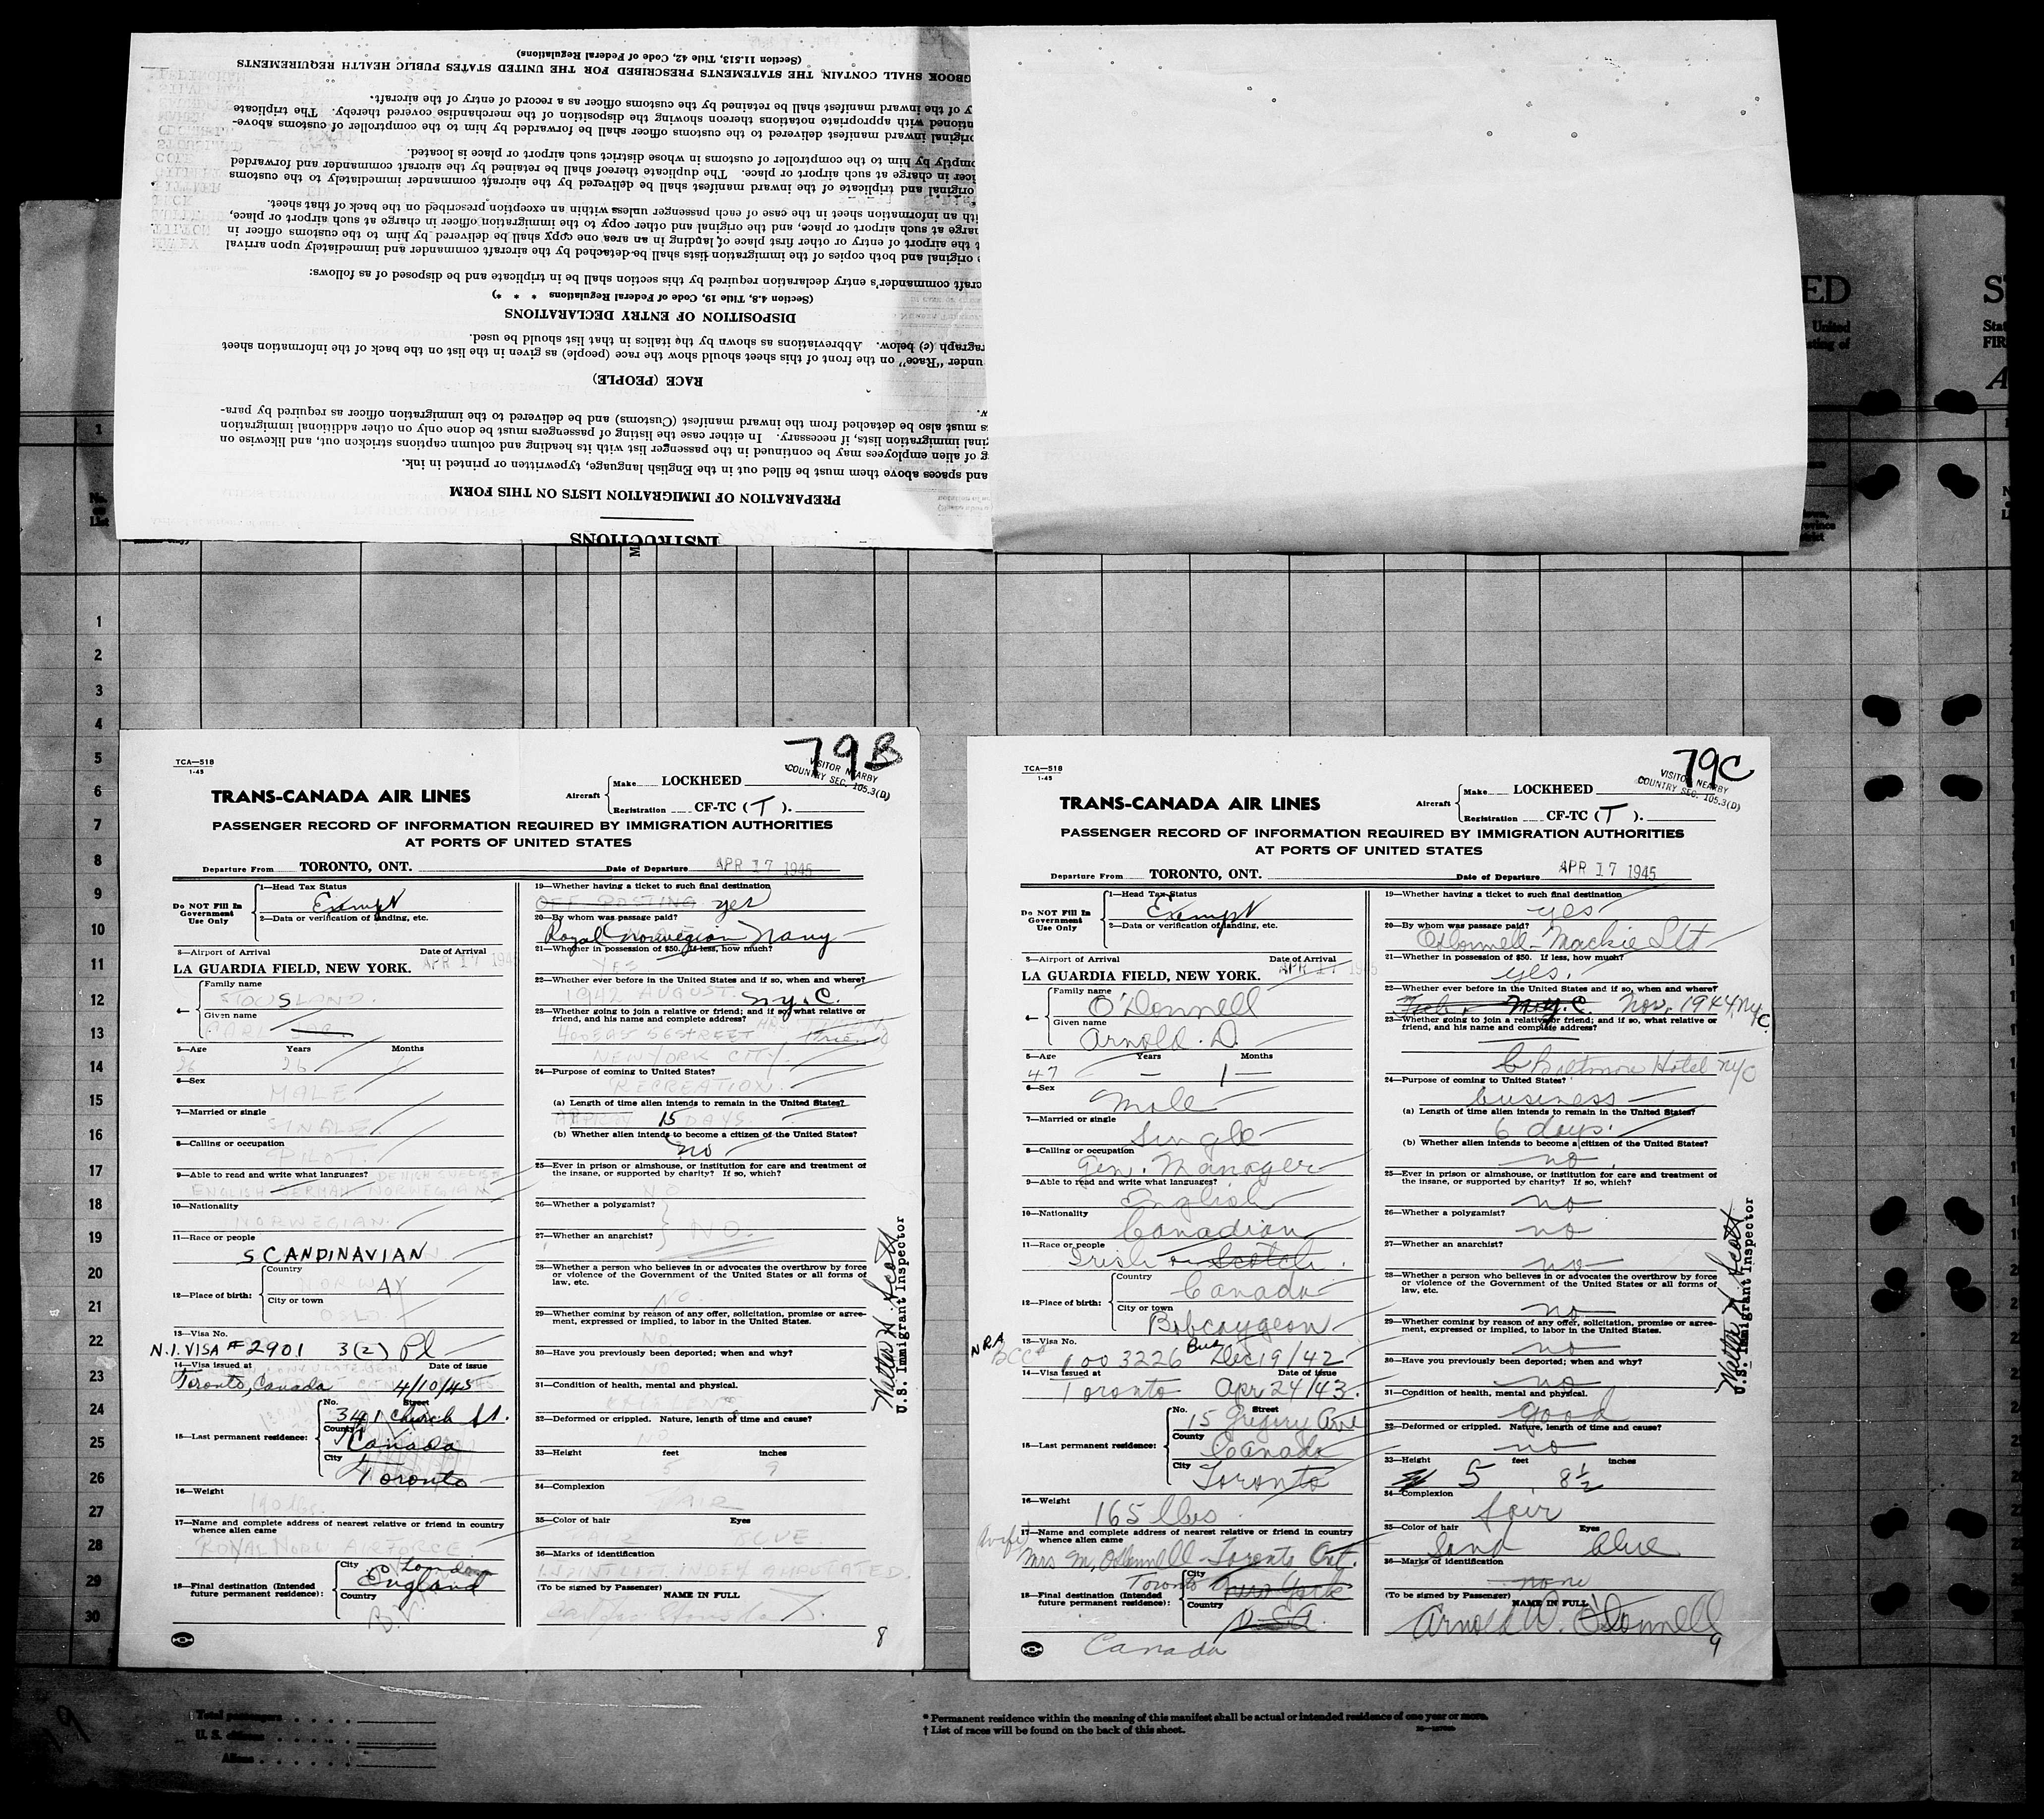 (Section 11.513, Title 42, Code of Federal Regulations)
GBOOK SHALL CONTAIN THE STATEMENTS PRESCRIBED FOR THE UNITED STATES PUBLIC HEALTH REQUIREMENTS
y of the inward manifest shall be retained by the customs officer as a record of entry of the aircraft.
ntioned with appropriate notations thereon showing the disposition of the merchandise covered thereby. The triplicate
original inward manifest delivered to the customs officer shall be forwarded by him to the comptroller of customs above-
omptly by him to the comptroller of customs in whose district such airport or place is located.
icer in charge at such airport or place. The duplicate thereof shall be retained by the aircraft commander and forwarded
original and triplicate of the inward manifest shall be delivered by the aircraft commander immediately to the customs
ith an information sheet in the case of each passenger unless within an exception prescribed on the back of that sheet.
harge at such airport or place, and the original and other copy to the immigration officer in charge at such airport or place,
t the airport of entry or other first place of landing in an area one copy shall be delivered by him to the customs officer in
e original and both copies of the immigration lists shall be detached by the aircraft commander and immediately upon arrival
craft commander's entry declaration required by this section shall be in triplicate and be disposed of as follows:
(Section 4.8, Title 19, Code of Federal Regulations * * *)
DISPOSITION OF ENTRY DECLARATIONS
ragraph (c) below. Abbreviations as shown by the italics in that list should be used.
under "Race" on the front of this sheet should show the race (people) as given in the list on the back of the information sheet
RACE (PEOPLE)
w.
s must also be detached from the inward manifest (Customs) and be delivered to the immigration officer as required by para-
ginal immigration lists, if necessary. In either case the listing of passengers must be done only on other additional immigration
g of alien employees may be continued in the passenger list with its heading and column captions stricken out, and likewise on
and spaces above them must be filled out in the English language, typewritten or printed in ink.
PREPARATION OF IMMIGRATION LISTS ON THIS FORM
INSTRUCTIONS
ED
United
1
1
2
3
4
5
6
7
8
9
10
11
12
13
14
15
16
17
18
19
20
21
22
23
24
25
26
27
28
29
30
TCA—518
1-45
79B
VISITOR NEARBY
COUNTRY SEC. 105.3(D)
Aircraft Make LOCKHEED
Registration CF-TC (T).
TRANS-CANADA AIR LINES
PASSENGER RECORD OF INFORMATION REQUIRED BY IMMIGRATION AUTHORITIES
AT PORTS OF UNITED STATES
Departure From TORONTO, ONT. Date of Departure APR 17 1945
Do NOT Fill In Government Use Only
1—Head Tax Status
Exempt
2—Data or verification of landing, etc.
3—Airport of Arrival Date of Arrival
LA GUARDIA FIELD, NEW YORK. APR 17 1945
4— Family name
STOUSLAND.
Given name
CARL
5—Age Years Months
26 26
6—Sex
MALE
7—Married or single
SINGLE
8—Calling or occupation
PILOT.
9—Able to read and write what languages?
ENGLISH GERMAN NORWEGIAN
10—Nationality
NORWEGIAN.
11—Race or people
SCANDINAVIAN
12—Place of birth: Country
NORWAY
City or town
OSLO
13—Visa No.
N.I. VISA # 2901 3(2) Pl
14—Visa issued at Date of issue
Toronto, Canada 4/10/45
15—Last permanent residence: No. Street
341 Church St.
County
Canada
City
Toronto
16—Weight
190 lbs.
17—Name and complete address of nearest relative or friend in country
whence alien came
ROYAL NORW AIRFORCE
18—Final destination (Intended future permanent residence): City
London
England
Country
19—Whether having a ticket to such final destination
OFF POSTING yes
20—By whom was passage paid?
Royal Norwegian Navy
21—Whether in possession of $50. If less, how much?
YES
22—Whether ever before in the United States and if so, when and where?
1942 AUGUST. N.Y.C.
23—Whether going to join a relative or friend; and if so, what relative or
friend, and his name and complete address?
56 STREET friend
NEW YORK CITY.
24—Purpose of coming to United States?
RECREATION.
(a) Length of time alien intends to remain in the United States?
15 DAYS.
(b) Whether alien intends to become a citizen of the United States?
no
25—Ever in prison or almshouse, or institution for care and treatment of
the insane, or supported by charity? If so, which?
NO
26—Whether a polygamist?
27—Whether an anarchist?
NO.
28—Whether a person who believes in or advocates the overthrow by force
or violence of the Government of the United States or all forms of
law, etc.
NO.
29—Whether coming by reason of any offer, solicitation, promise or agree-
ment, expressed or implied, to labor in the United States.
NO
30—Have you previously been deported; when and why?
NO
31—Condition of health, mental and physical.
32—Deformed or crippled. Nature, length of time and cause?
NO
33—Height feet inches
5 9
34—Complexion
FAIR
35—Color of hair Eyes
36—Marks of identification
LEFT INDEX AMPUTATED.
(To be signed by Passenger) NAME IN FULL
8
Walter H. Scott
U.S. Immigrant Inspector
TCA—518
1-45
79C
VISITOR NEARBY
COUNTRY SEC. 105.3(D)
Aircraft Make LOCKHEED
Registration CF-TC (T).
TRANS-CANADA AIR LINES
PASSENGER RECORD OF INFORMATION REQUIRED BY IMMIGRATION AUTHORITIES
AT PORTS OF UNITED STATES
Departure From TORONTO, ONT. Date of Departure APR 17 1945
Do NOT Fill In Government Use Only
1—Head Tax Status
Exempt
2—Data or verification of landing, etc.
3—Airport of Arrival Date of Arrival
LA GUARDIA FIELD, NEW YORK. APR 17 1945
4— Family name
O'Donnell
Given name
Arnold.
5—Age Years Months
47 — 1 —
6—Sex
Male
7—Married or single
Single
8—Calling or occupation
Gen. Manager
9—Able to read and write what languages?
English
10—Nationality
Canadian
11—Race or people
Irish or Scotch.
12—Place of birth: Country
Canada
City or town
Bobcaygeon
13—Visa No.
NRA BCC# 100 3226 Dec 19/42
14—Visa issued at Date of issue
Toronto Apr 24/43.
15—Last permanent residence: No. Street
15 Gregory Ave
County
Canada
City
Toronto
16—Weight
165 lbs
17—Name and complete address of nearest relative or friend in country
whence alien came
wife
Mrs M, O'Donnell - Toronto Ont.
18—Final destination (Intended future permanent residence): City
Toronto New York
Country
U.S.A.
Canada
19—Whether having a ticket to such final destination
yes
20—By whom was passage paid?
O'Donnell-Mackie Ltd
21—Whether in possession of $50. If less, how much?
yes.
22—Whether ever before in the United States and if so, when and where?
N.Y.C. Nov. 1944, NYC.
23—Whether going to join a relative or friend; and if so, what relative or
friend, and his name and complete address?
Biltmore Hotel NYC
24—Purpose of coming to United States?
business
(a) Length of time alien intends to remain in the United States?
6 days.
(b) Whether alien intends to become a citizen of the United States?
no
25—Ever in prison or almshouse, or institution for care and treatment of
the insane, or supported by charity? If so, which?
no
26—Whether a polygamist?
no
27—Whether an anarchist?
no
28—Whether a person who believes in or advocates the overthrow by force
or violence of the Government of the United States or all forms of
law, etc.
no
29—Whether coming by reason of any offer, solicitation, promise or agree-
ment, expressed or implied, to labor in the United States.
no
30—Have you previously been deported; when and why?
no
31—Condition of health, mental and physical.
good
32—Deformed or crippled. Nature, length of time and cause?
no
33—Height feet inches
5 8½
34—Complexion
fair
35—Color of hair Eyes
Sand blue
36—Marks of identification
none
(To be signed by Passenger) NAME IN FULL
Arnold W. O'Donnell
9
Walter H Scott
U.S. Immigrant Inspector
Total passengers
U. S. citizens
Aliens
* Permanent residence within the meaning of this manifest shall be actual or intended residence of one year or more.
† List of races will be found on the back of this sheet.